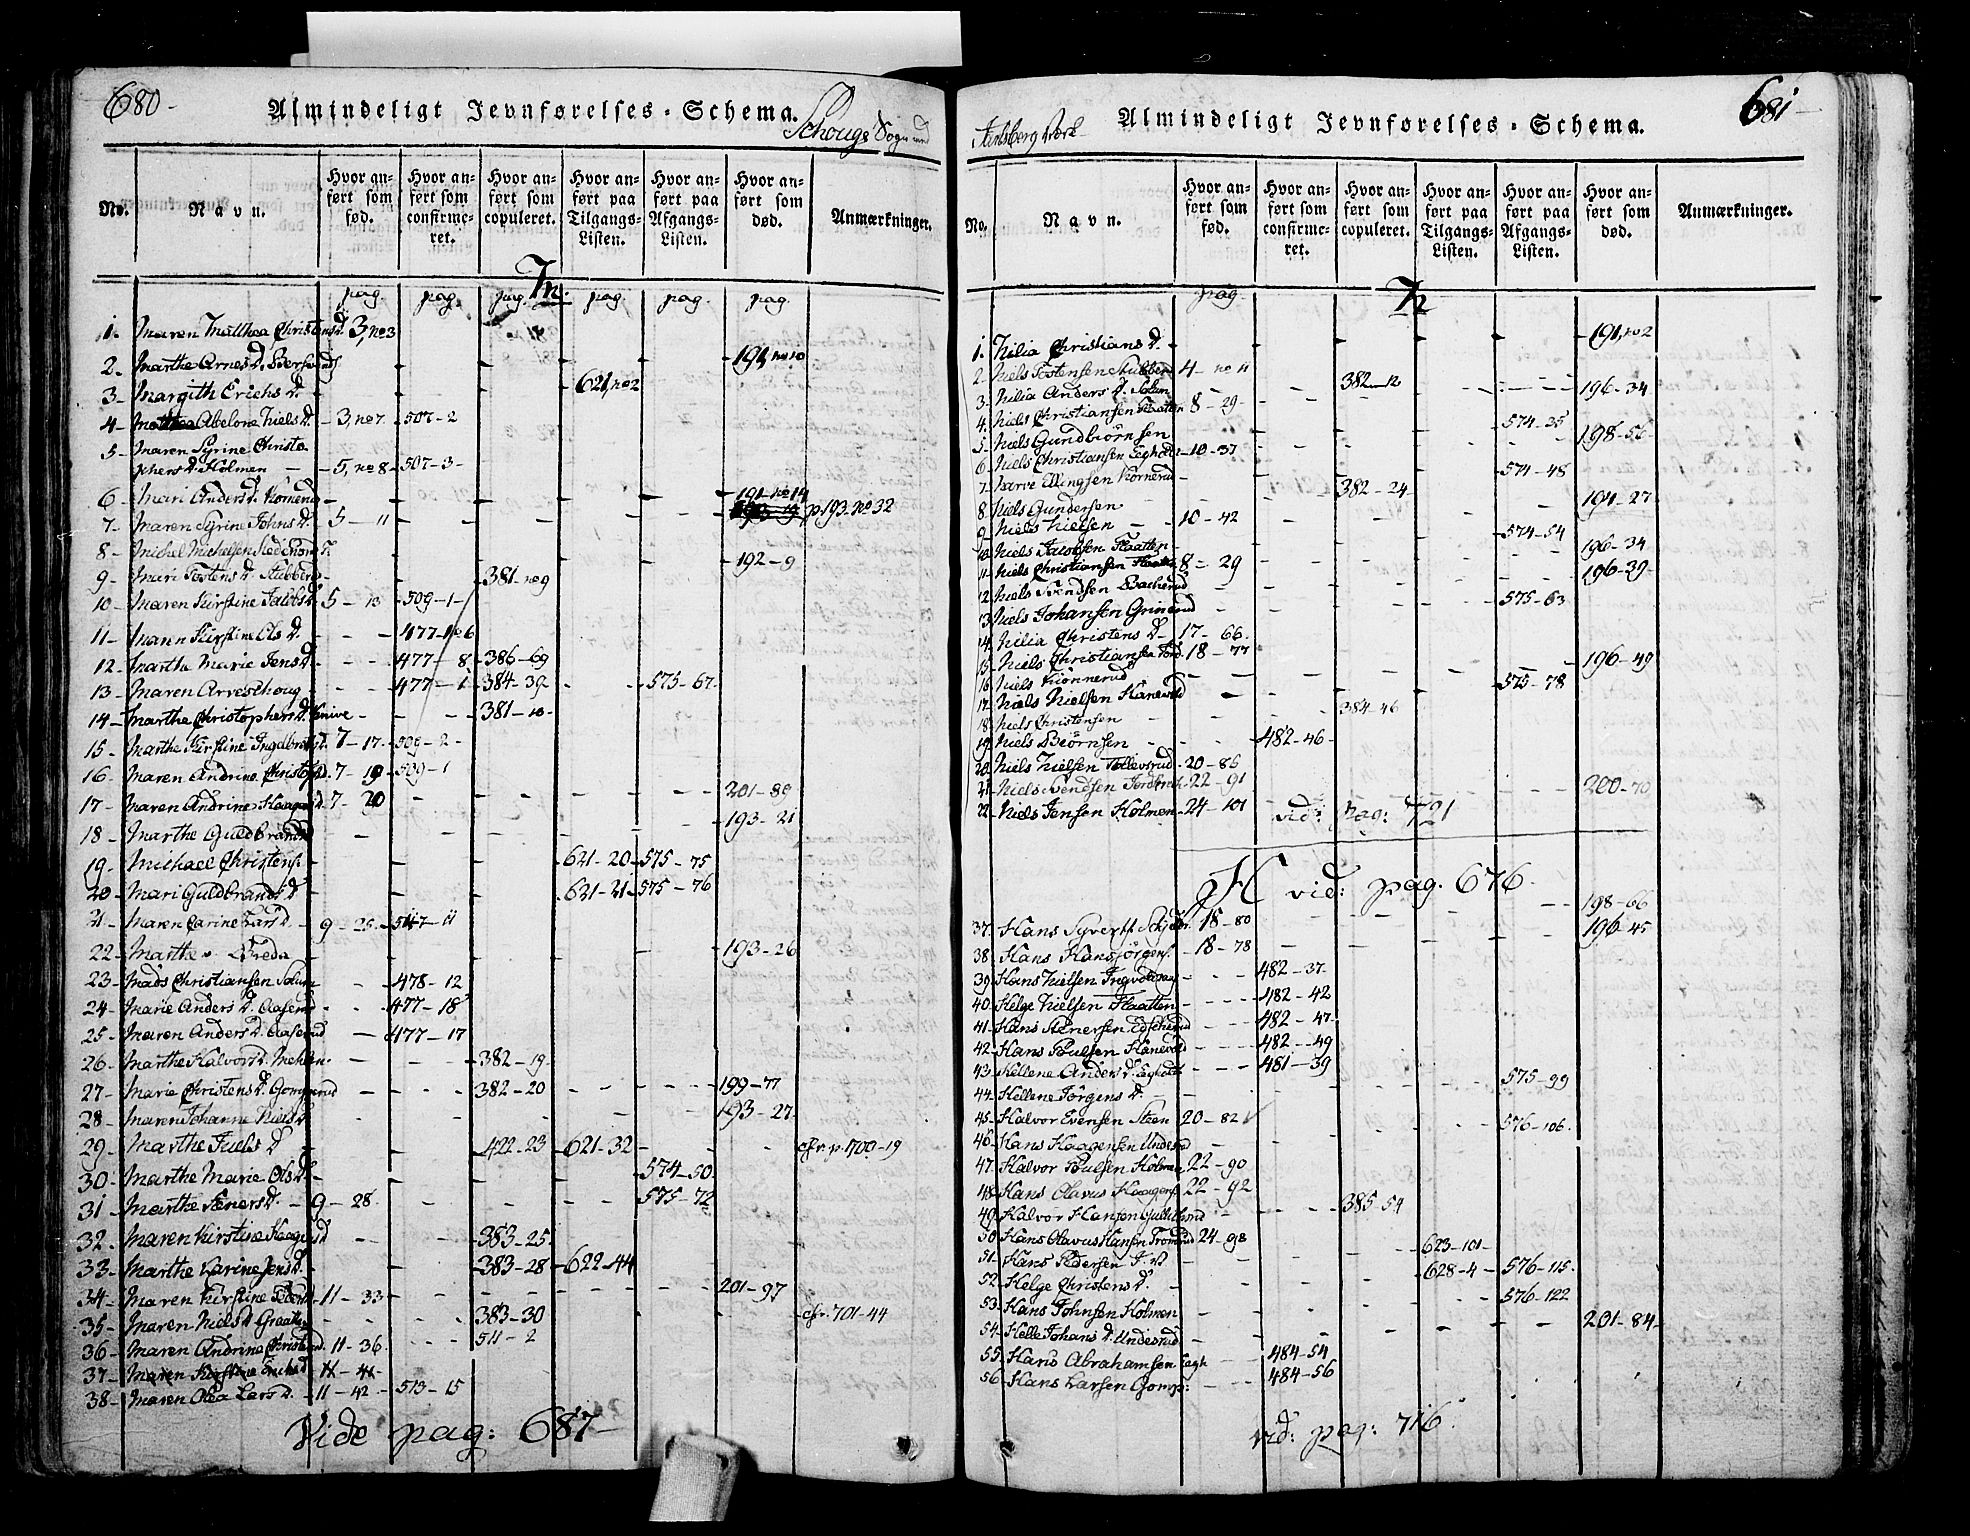 680-
Almindeligt Jevnførelses-Schema.
Schouge Sogn
No.
Navn.
Hvor anført som fød.
Hvor anført som confirmeret.
Hvor anført som copuleret.
Hvor anført paa Tilgangs-Listen.
Hvor anført paa Afgangs-Listen.
Hvor anført som død.
Anmærkninger.
M.
pag. pag. pag. pag. pag. pag.
1. Maren Christensd. 3, no 3
2. Marthe Arnes D. - - - - - 191, no 10
3- Margith Erichs D. - - - 621, no 2
4- Abelone Niels D. - 3, no 7 - 507-2
5- Maren Syrine Christo
phersd. Holmen - - 5, no 8 - 507-3-
6- Mari Anders D. - - - - - 191-no 14
7- Maren Syrine Johns D. 5 - 11 - - - - p. 193. no 32
8- Michel Michelsen - - - - - 192-9
9- Mari Tostens D. Stubberu - - 381-no 9
10- Maren Kirstine Jacobs D. 5 - 13 - 509-1-
11- Maren Kirstine Ols D. - - 477-no 6
12- Marthe Marie Jens D. - - 477-8 - 386-69
13- Maren Arveschoug - - 477-1 - 384-39 - - 575-67
14- Marthe Christophers D. - - - 381-10-
15- Marthe Kirstine 7-17 - 509-2-
16- Maren Andrine Christoph. 7-19 - 509-1
17- Maren Andrine Haagensd. 7-20 - - - - - 201-89
18- Marthe Guldbrands - - - - - 193-21
19- Michael Christens. - - - 621-20 - 575-75
20- Mari Guldbrands D. - - - 621-21 - 575-76
21- Maren Carine Lars D. - 9-25 - 11
22- Marthe - - - - - 193-26
23- Mads Christiansen - - 478-12
24- Marie Anders D. Aaserud - - 477-18
25- Maren Anders D. Aaserud - 477-17
26- Marthe Halvors D. - - 382-19
27- Marie Christens D. - - - 382-20 - - - - 199-77
28- Maren Johanne Niels D. - - - - - 193-27
29- Marthe Juels D. - - 422-23 - 621-32 - - - cfr. p. 700-19
30- Marthe Marie Ols D. - - - - 574-50
31- Marthe D. - 9-28 - - - - 575-72
32- Maren Kirstine - - - 383-25
33- Marthe Karine Jens D. - - - 383-28 - 622-44
34- Maren Kirstine 11-33 - - - - - 201-97
35- Maren Niels D. - - - 383-30 - - - cfr. 701-44
36- Maren Andrine Christensd. 11-36 - - - 511-2
37- Maren Kirstine 11-41
38- Maren Olea Lars D. - 11-42 - 513-15
Vide pag: 687-
681-
Almindeligt Jevnførelses-Schema.
No.
Navn.
Hvor anført som fød.
Hvor anført som confirmeret.
Hvor anført som copuleret.
Hvor anført paa Tilgangs-Listen.
Hvor anført paa Afgangs-Listen.
Hvor anført som død.
Anmærkninger.
N
pag
1. Nilia Christians D. - - - - - 191, no 2
2. Niels Tostensen Stubberu 4 - no 11
3. Nilia Anders D. - - 382-12 - - - - 196-34
4. Niels Christiansen Flaatten 8-29
5. Niels Gundbiørnsen - - - - 574-25 - 198-56
6. Niels Christiansen 10-37
7. Ellingsen - - - - 574-48
8. Niels Gundersen - - 382-24 - - - 194-27
9. Niels Nielsen - - 10-42
10. Niels Jacobsen Flaatten - - - - 574-54 - 196-34
11. Niels Christiansen 8-29 - - - - - 196-39
12. Niels Svendsen Bacherud
13. Niels Johansen Grinerud - - - - 575-63
14. Nilia Christens D. - 17-66
15. Niels Christiansen 18-77 - - - - 196-49
16. Niels - - - - 575-78
17. Niels Nielsen
18. Niels Christensen - - - 384-46
19. Niels Biørnsen - - - 482-46
20. Niels Nielsen Tollevsrud - 20-85
21. Niels Svendsen 22-91 - - - - 200-70
22. Niels Jensen Holmen - 24-101
vid: pag: 721
H vid: pag. 676.
37. Hans Syverts. 18-80 - - - - 198-66
38. Hans Hansjørgens. - 18-78 - - - - 196-45
39. Hans Nielsen - - 482-37
40. Helge Nielsen Flaatten - - - 482-42
41. Hans - - - 482-47
42. Hans Poulsen - - - 482-49
43. Hellene Anders D. - - - 481-39
44. Hellene Jørgens D. - - - - 575-99
45. Halvor Evensen Steen 20-82
46. Hans Haagensen Underud - - - - 576-106
47. Halvor Poulsen Holmen 22-90
48. Hans Olavus Haagens. 22-92
49. Halvor Hansen - - - 385-54
50. Hans Olavus Hansen 24-98
51. Hans Pedersen - - - 623-101
52. Helge Christens D. - - - 628-4 - 576-115
53. Hans Johnsen Holmen - - - - 576-122
54. Helle Johans D. Underud - - - - - 201-84-
55. Hans Abrahamsen - - 484-54
56. Hans Larsen Gomp: - - 484-56
vid: pag: 716